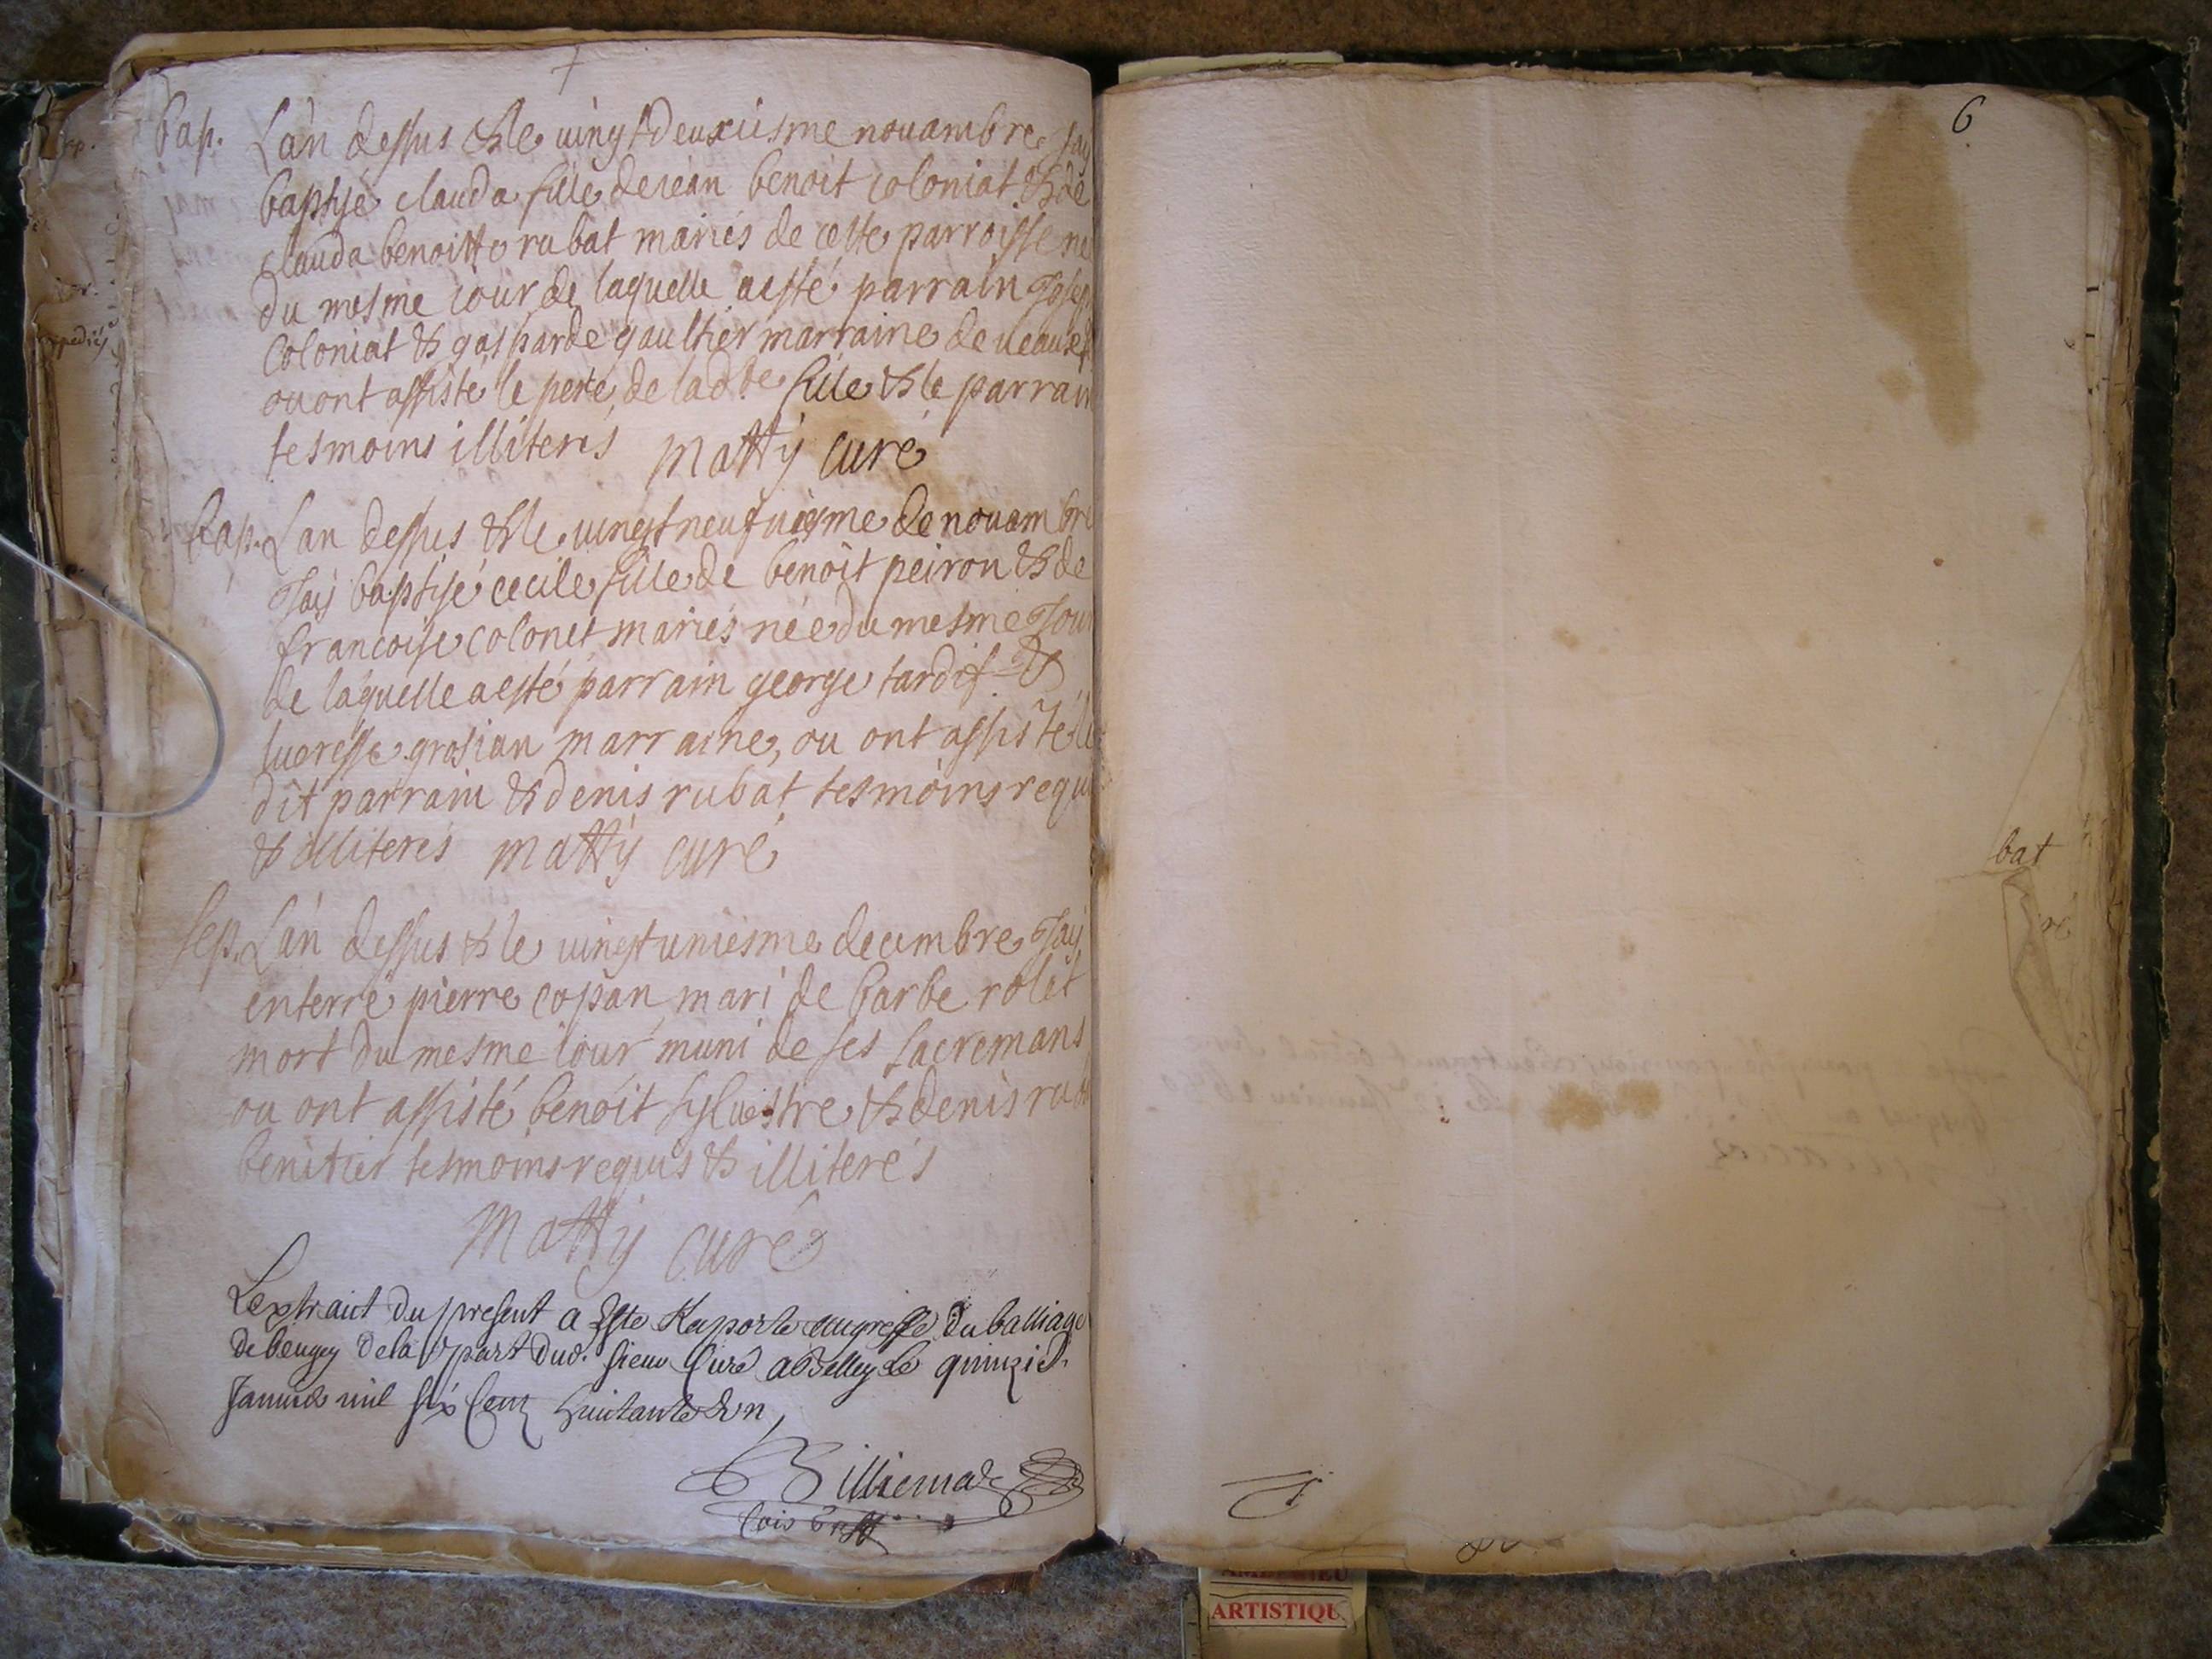 bap. L'an dessus & le vingt deuxiesme nouambre Jay
baptisé clauda fille de iean benoit coloniat & de
clauda benoitte rubat mariés de cette parroisse née
du mesme iour de laquelle a esté parrain Joseph
Coloniat & gasparde gaultier marraine de
ou ont assisté le pere de lad.te fille & le parrain
tesmoins illiterés Matty curé
bap. L'an dessus & le vingt neufuiesme de nouambre
Jay baptisé cecile fille de benoit peiron & de
francoise colonet mariés née du mesme Jour
de laquelle a esté parrain george tardif &
lucresse grosian marraine, ou ont assisté le
dit parrain & denis rubat tesmoins requis
& illiterés Matty curé
sep. L'an dessus & le vingt uniesme decembre Jay
enterré pierre copan mari de barbe rolet
mort du mesme iour muni de ses sacremans
ou ont assisté benoit syluestre & denis rubat
benitier tesmoins requis & illiterés
Matty curé
Lextraict du present a Este Raporte au greffe du balliage
de beugey de la part dud. sieur Curé a Belley le quinzie
Janvier mil six Cent huictante & un
Billiemaz
6
bat
ré
ARTISTIQU